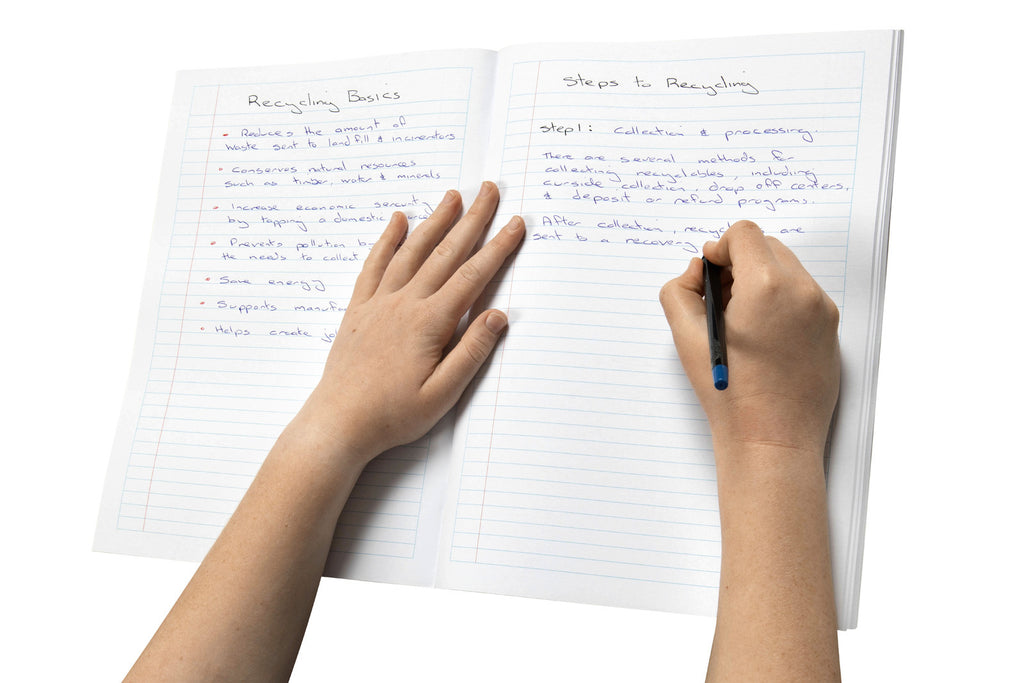 Recycling Basics
• Reduces the amount of
waste sent to landfill & incinerators
• Conserves natural resources
such as timber, water & minerals
• Increase economic security
by tapping a domestic
• Prevents pollution by
the needs to collect
• Save energy
• Supports
• Helps create
Steps to Recycling
Step 1: Collection & processing.
There are several methods for
collecting recyclables, including
curside collection, drop off centers,
& deposit or refund programs.
After collection, are
sent to a recovery